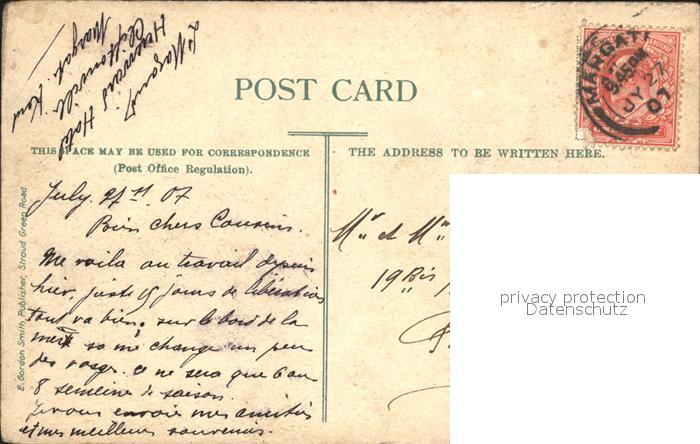 L. Mazauz
Howards Hotel
Cliftonville
Margate Kent
POST CARD
MARGATE
9.45PM
JY 27
07
THIS SPACE MAY BE USED FOR CORRESPONDENCE
(Post Office Regulation).
THE ADDRESS TO BE WRITTEN HERE.
E. Gordon Smith, Publisher, Stroud Green Road
July. 27st 07
Bien chers Cousins.
Me voila au travail depuis
hier juste 15 jours de
tout va bien, sur le bord de la
mer so me change un peu
des ce ne sera que 6 ou
8 semeine de saison.
Je vous envoie mes amitiés
et mes meilleurs souvenirs.
Mr et Mme
19 Bis
privacy protection
Datenschutz